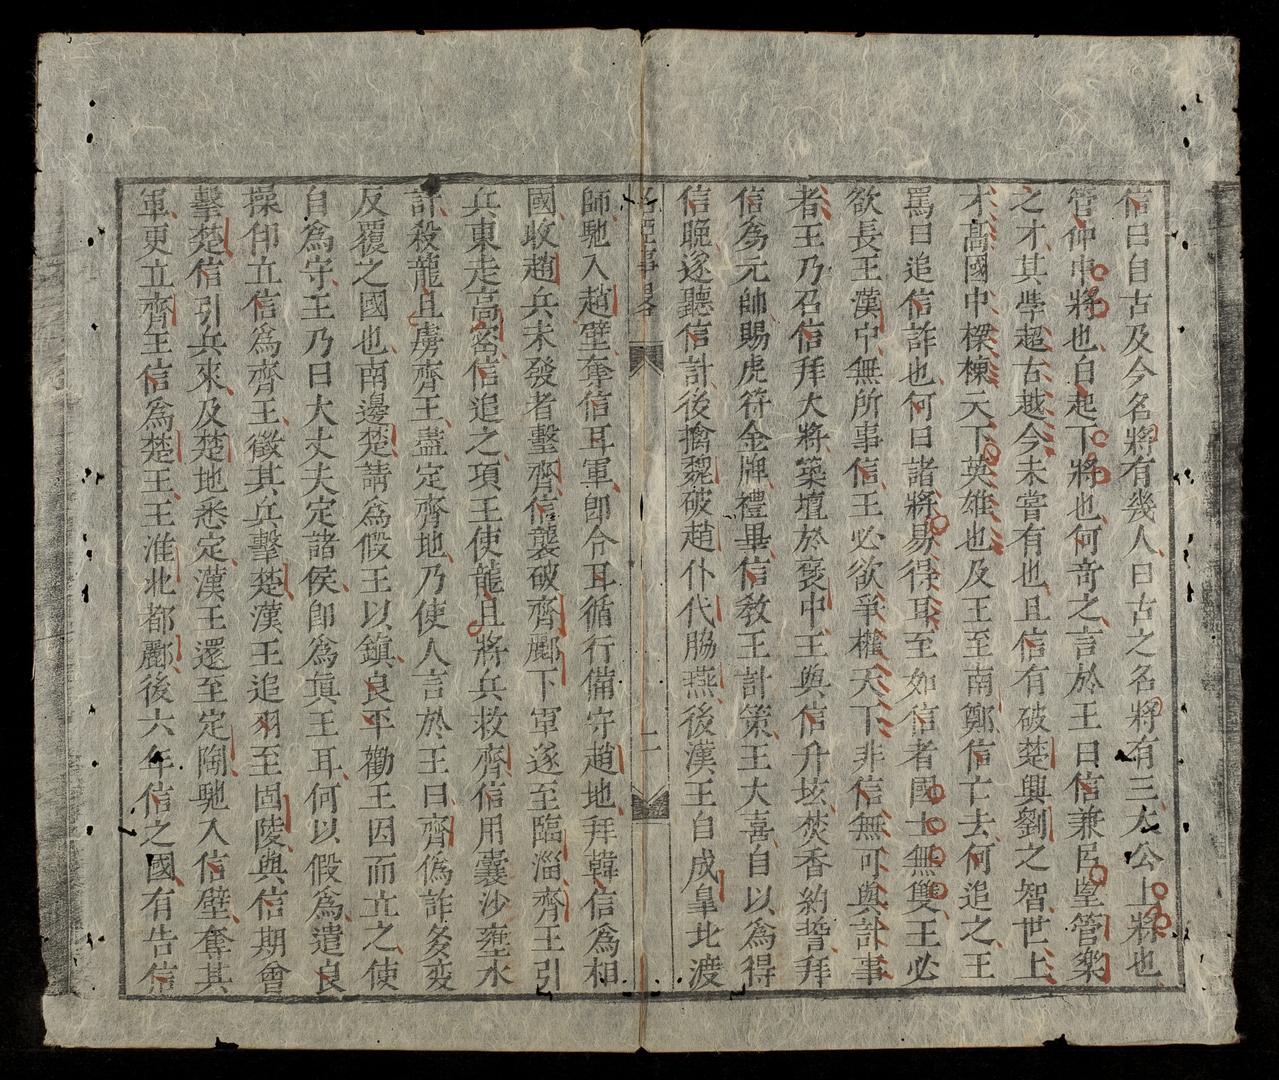 信曰自古及今名將有幾人曰古之名將有三太公上將也
管仲中將也白起下將也何奇之言於王曰信兼呂望管樂
之才其學超古越今未嘗有也且信有破楚興劉之智世上
才高國中樑棟天下英雄也及王至南鄭信亡去何追之王
罵曰追信詐也何曰諸將易得耳至如信者國士無雙王必
欲長王漢中無所事信王必欲爭權天下非信無可與計事
者王乃召信拜大將築壇於褒中王與信升垓焚香約誓拜
信為元帥賜虎符金牌禮畢信教王計策王大喜自以為得
信晚遂聽信計後擒魏破趙仆代脇燕後漢王自成皐北渡
師馳入趙壁奪信耳軍卽令耳循行備守趙地拜韓信為相
國收趙兵未發者擊齊信襲破齊酈下軍遂至臨淄齊王引
兵東走高密信追之項王使龍且將兵救齊信用囊沙壅水
計殺龍且虜齊王盡定齊地乃使人言於王曰齊偽詐多変
反覆之國也南邊楚請為假王以鎮良平勸王因而立之使
自為守王乃曰大丈夫定諸侯卽為眞王耳何以假為遣良
操印立信為齊王徵其兵擊楚漢王追羽至固陵與信期會
擊楚信引兵來及楚地悉定漢王還至定陶馳入信壁奪其
軍更立齊王信為楚王王淮北都酈後六年信之國有告信